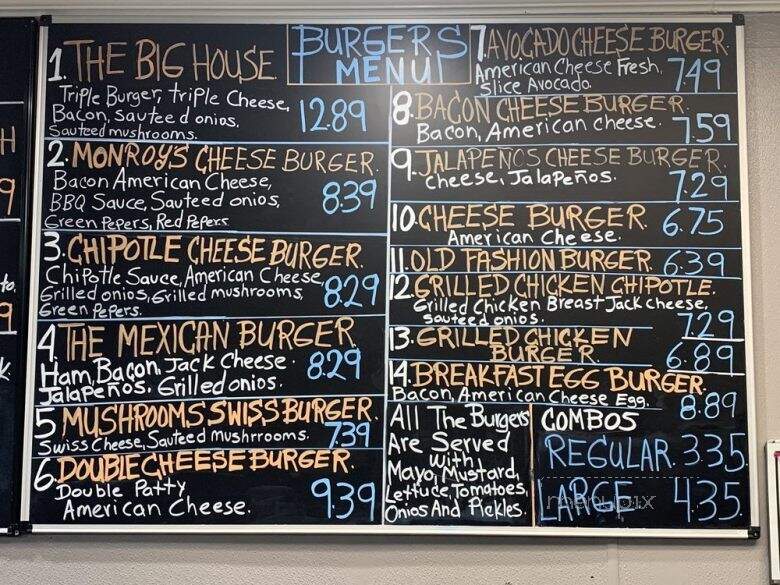 BURGERS
MENU
1. THE BIG HOUSE
Triple Burger, triple Cheese,
Bacon, sauteed onios,
Sauteed mushrooms.
12.89
2. MONROY'S CHEESE BURGER.
Bacon American Cheese,
BBQ Sauce, Sauteed onios,
Green Pepers, Red Pepers
8.39
3. CHIPOTLE CHEESE BURGER.
Chipotle Sauce, American Cheese
Grilled onios, Grilled mushrooms,
Green Pepers.
8.29
4 THE MEXICAN BURGER
Ham, Bacon, Jack Cheese.
Jalapeños. Grilled onios.
8.29
5 MUSHROOMS SWISS BURGER.
Swiss Cheese, Sauteed Mushrrooms.
7.39
6. DOUBLE CHEESE BURGER.
Double Patty
American Cheese.
9.39
7. AVOCADO CHEESE BURGER.
American Cheese Fresh,
Slice Avocado.
7.49
8. BACON CHEESE BURGER.
Bacon, American cheese.
7.59
9. JALAPEÑOS CHEESE BURGER.
Cheese, Jalapeños.
7.29
10. CHEESE BURGER. 6.75
American Cheese.
11. OLD FASHION BURGER. 6.39
12. GRILLED CHICKEN CHIPOTLE.
Grilled Chicken Breast Jack cheese,
sauteed onios.
7.29
13. GRILLED CHICKEN
BURGER.
6.89
14. BREAKFAST EGG BURGER.
Bacon, American Cheese Egg.
8.89
All The Burgers
Are Served
with,
Mayo, Mustard,
Lettuce, Tomatoes,
Onios And Pickles.
COMBOS
REGULAR. 3.35
LARGE. 4.35
menupix